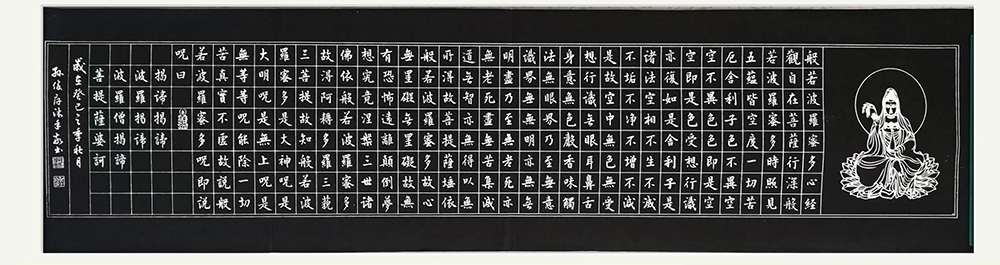 般若波羅蜜多心經
觀自在菩薩行深般
若波羅蜜多時照見
五蘊皆空度一切苦
厄舍利子色不異空
空不異色色即是空
空即是色受想行識
亦復如是舍利子是
諸法空相不生不滅
不垢不淨不增不減
是故空中無色無受
想行識無眼耳鼻舌
身意無色聲香味觸
法無眼界乃至無意
識界無無明亦無無
明盡乃至無老死亦
無老死盡無苦集滅
道無智亦無得以無
所得故菩提薩埵依
般若波羅蜜多故心
無罣礙無罣礙故無
有恐怖遠離顛倒夢
想究竟涅槃三世諸
佛依般若波羅蜜多
故得阿耨多羅三藐
三菩提故知般若波
羅蜜多是大神呪是
大明呪是無上呪是
無等等呪能除一切
苦真實不虛故說般
若波羅蜜多呪即說
呪曰
揭諦揭諦
波羅揭諦
波羅僧揭諦
菩提薩婆訶
歲在癸巳之季秋月
孫俊存沐手敬書